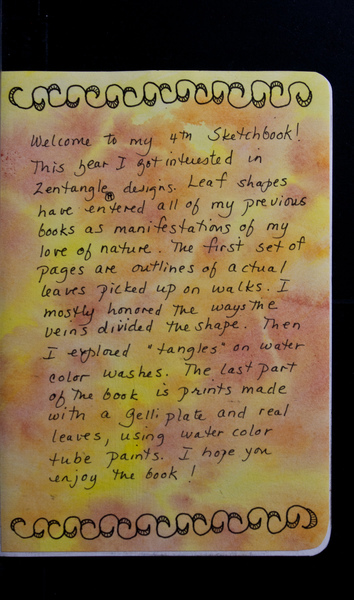 Welcome to my 4th Sketchbook!
This year I got interested in
Zentangle® designs. Leaf shapes
have entered all of my previous
books as manifestations of my
love of nature. The first set of
pages are outlines of actual
leaves picked up on walks. I
mostly honored the ways the
veins divided the shape. Then
I explored "tangles" on water
color washes. The last part
of the book is prints made
with a gelli plate and real
leaves, using water color
tube paints. I hope you
enjoy the book!